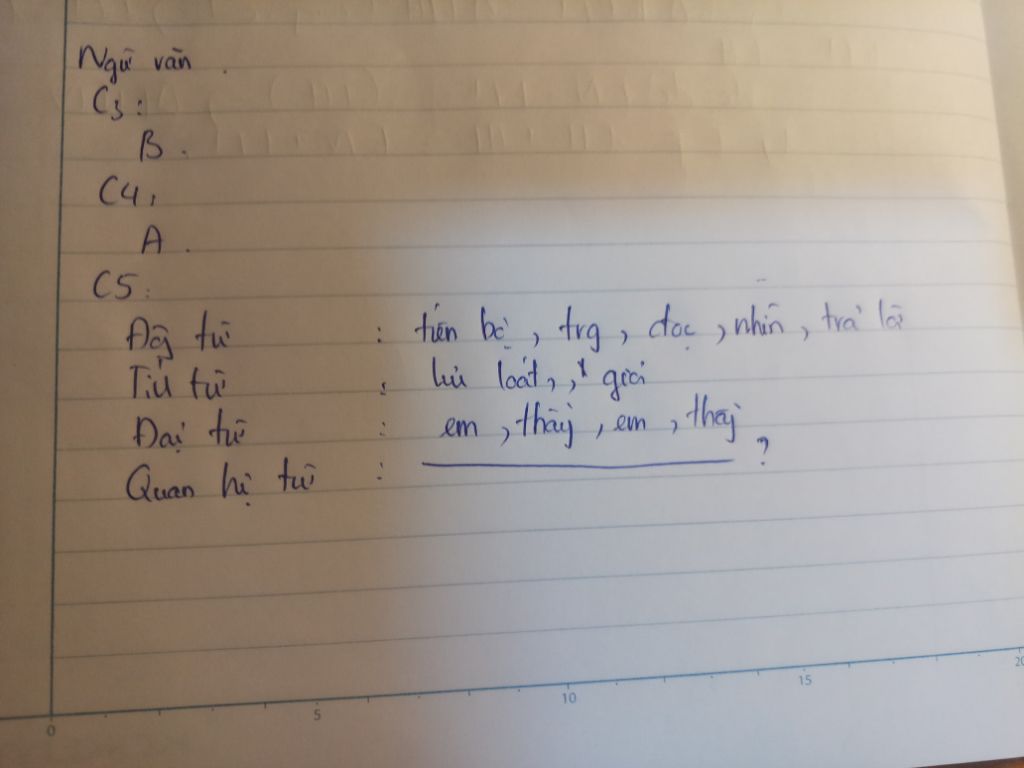 Ngữ văn.
C3:
B.
C4,
A.
C5:
Độg từ : tiến bộ, trg, đọc, nhìn, trả lời
Từ :, giỏi
Đại từ : em, thầy, em, thầy
Quan hệ từ : ?
0 5 10 15 20